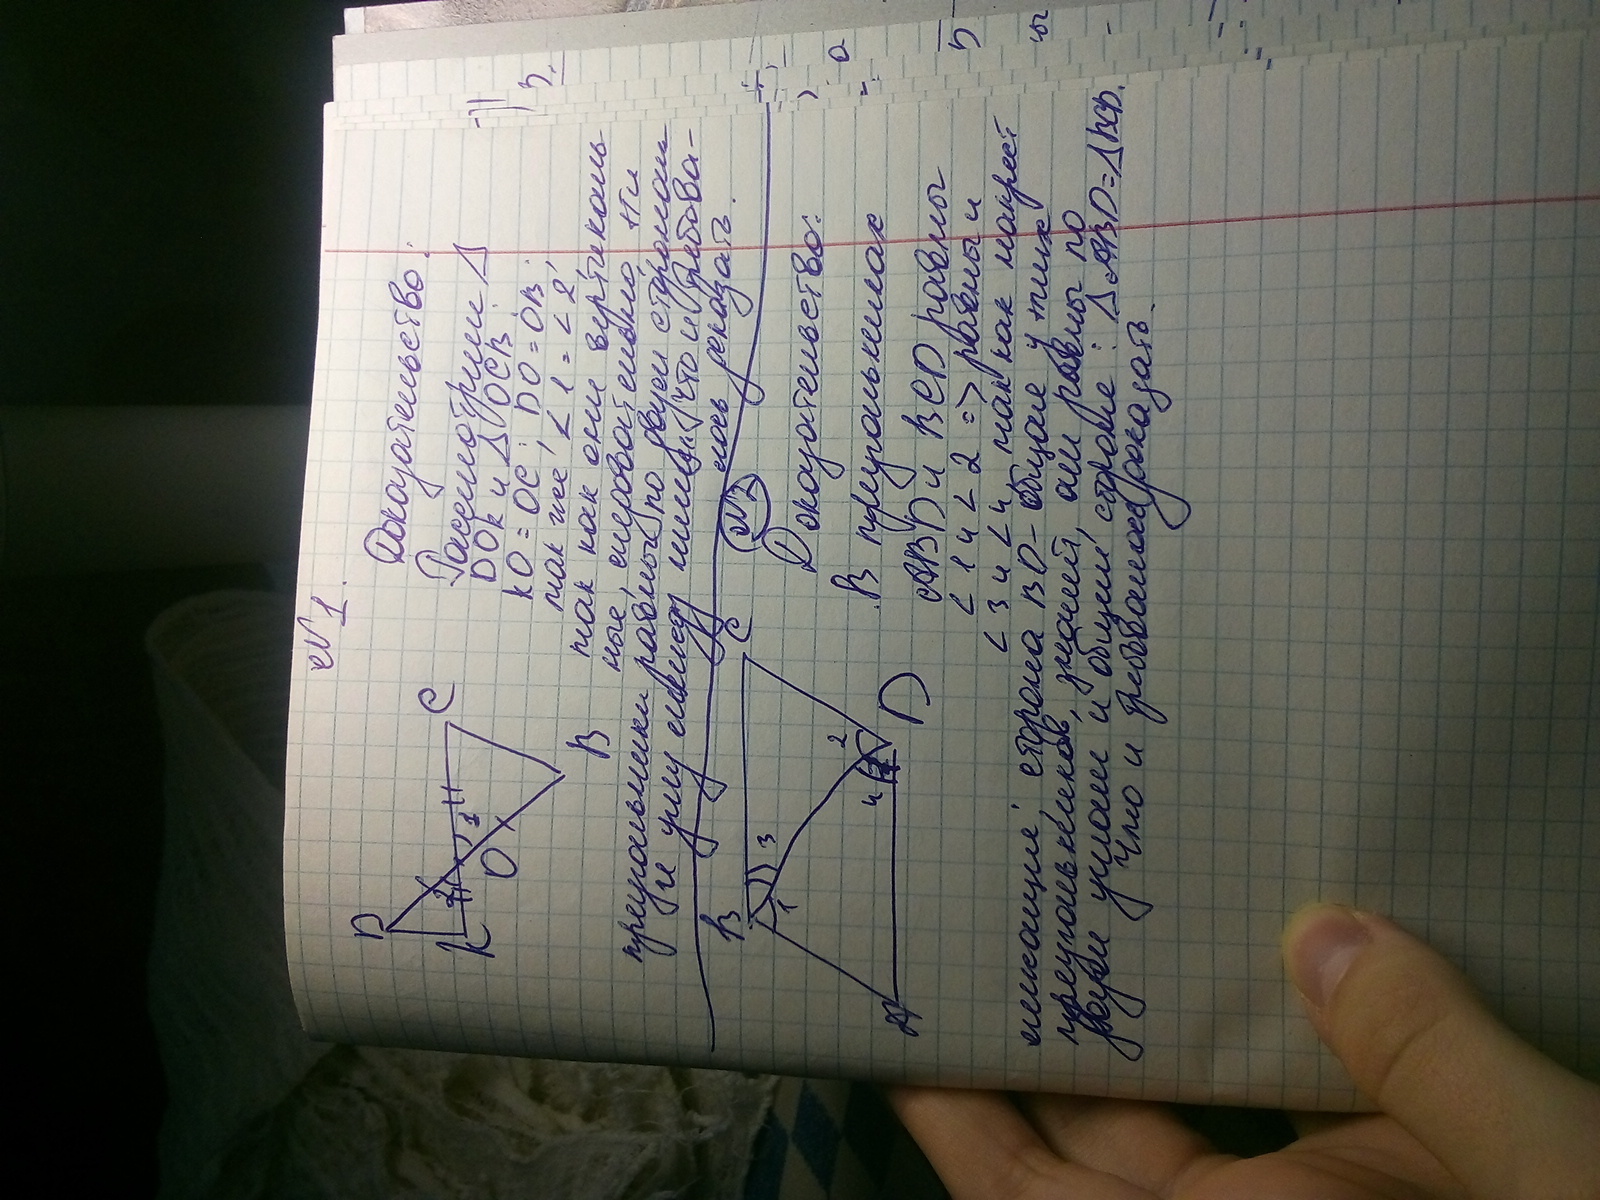 №1.
Доказательство:
Рассмотрим Δ
DOK и Δ OCB.
KO = OC; DO = OB;
так же, <1 = <2,
так как они вертикаль
ные, следовательно эти
треугольники равны по двум сторонам
и углу между ними, что и требова-
лось доказать.
D
K
O
1
2
C
B
№2
Доказательство:
В треугольниках
ABD и BCD равны
<1 и <2 => равны и
<3 и <4, так как накрест
лежащие, сторона BD - общая у этих
треугольников, значит, они равны по
двум углам и общей стороне: Δ ABD = Δ BCD.
Что и требовалось доказать.
B
C
1
3
2
4
A
D